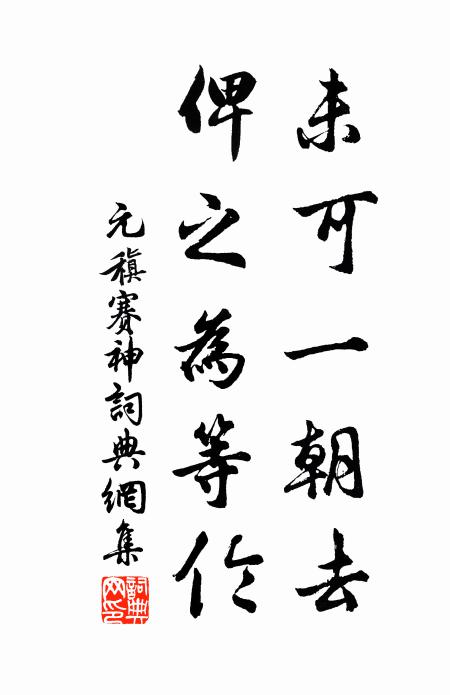 未可一朝去
俾之為等伦
元稹賽神詞典網集
詞典网印